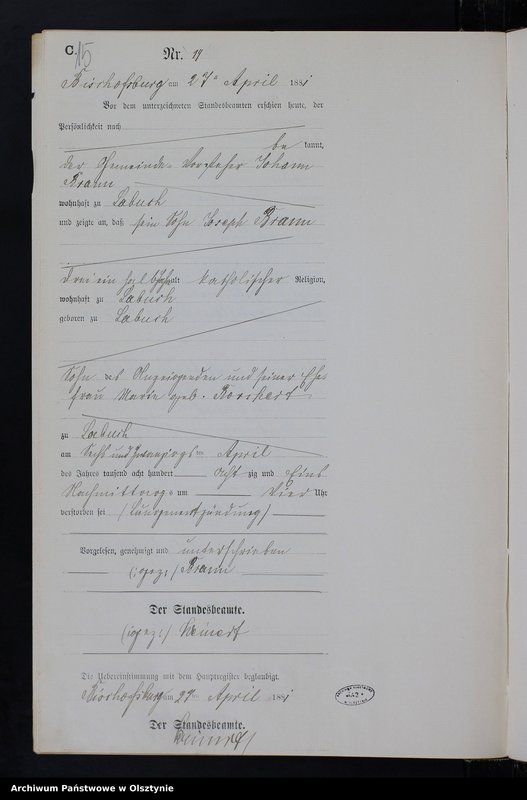 C. 15
Nr. 19
Bischofsburg am 27 ten April 1881
Vor dem unterzeichneten Standesbeamten erschien heute, der
Persönlichkeit nach
be kannt,
der Gemeinde-Vorsteher Johann
Krann
wohnhaft zu Labuch
und zeigte an, daß sein Sohn Joseph Krann
drei ein halb Jahr alt katholischer Religion,
wohnhaft zu Labuch
geboren zu Labuch
Sohn des Anzeigenden und seiner Ehe
frau Marie geb. Borchert
zu Labuch
am Sechs und zwanzigsten April
des Jahres tausend acht hundert acht zig und Eins
Nachmittags um Vier Uhr
verstorben sei (Lungenentzündung)
Vorgelesen, genehmigt und unterschrieben
(:gez:) Krann
Der Standesbeamte.
(:gez:)
Die Uebereinstimmung mit dem Hauptregister beglaubigt.
Bischofsburg am 27 ten April 1881
Der Standesbeamte.
Archiwum Państwowe w Olsztynie